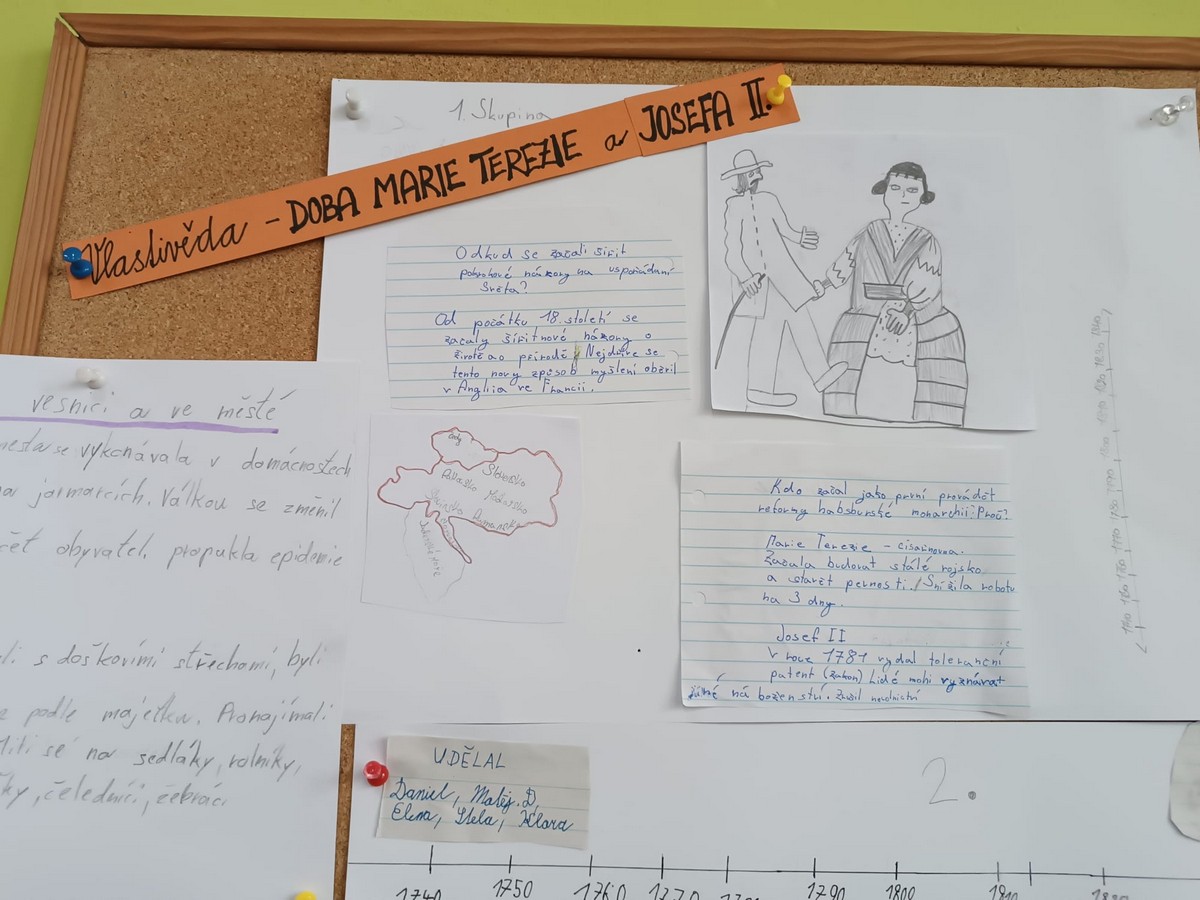 Vlastivěda - DOBA MARIE TEREZIE a JOSEFA II.
1. Skupina
Odkud se začali šířit
pokrokové názory na uspořádání
Světa?
Od počátku 18. století se
začaly šířit nové názory o
životě a o přírodě. Nejdříve se
tento nový způsob myšlení objevil
v Anglii a ve Francii.
Čechy
Slovensko
Rakousko Maďarsko
Kdo začal jako první provádět
reformy habsburské monarchii? Proč?
Marie Terezie - císařovna.
Začala budovat stálé vojsko
a stavět pevnosti. Snížila robotu
na 3 dny.
Josef II
V roce 1781 vydal toleranční
patent (zákon) Lidé mohi vyznávat
jiné náboženství. Zrušil nevolnictví
vesnici a ve městě
se vykonávala v domácnostech
jarmarcích. Válkou se změnil
obyvatel. propukla epidemie
s doškovími střechami, byli
podle majetku. Pronajímali
se na sedláky, rolníky,
čeledníci, žebráci
UDĚLAL
Daniel, Matěj. D,
Elena, Stela, Klara
2.
1740 1750 1760 1770 1790 1800 1810